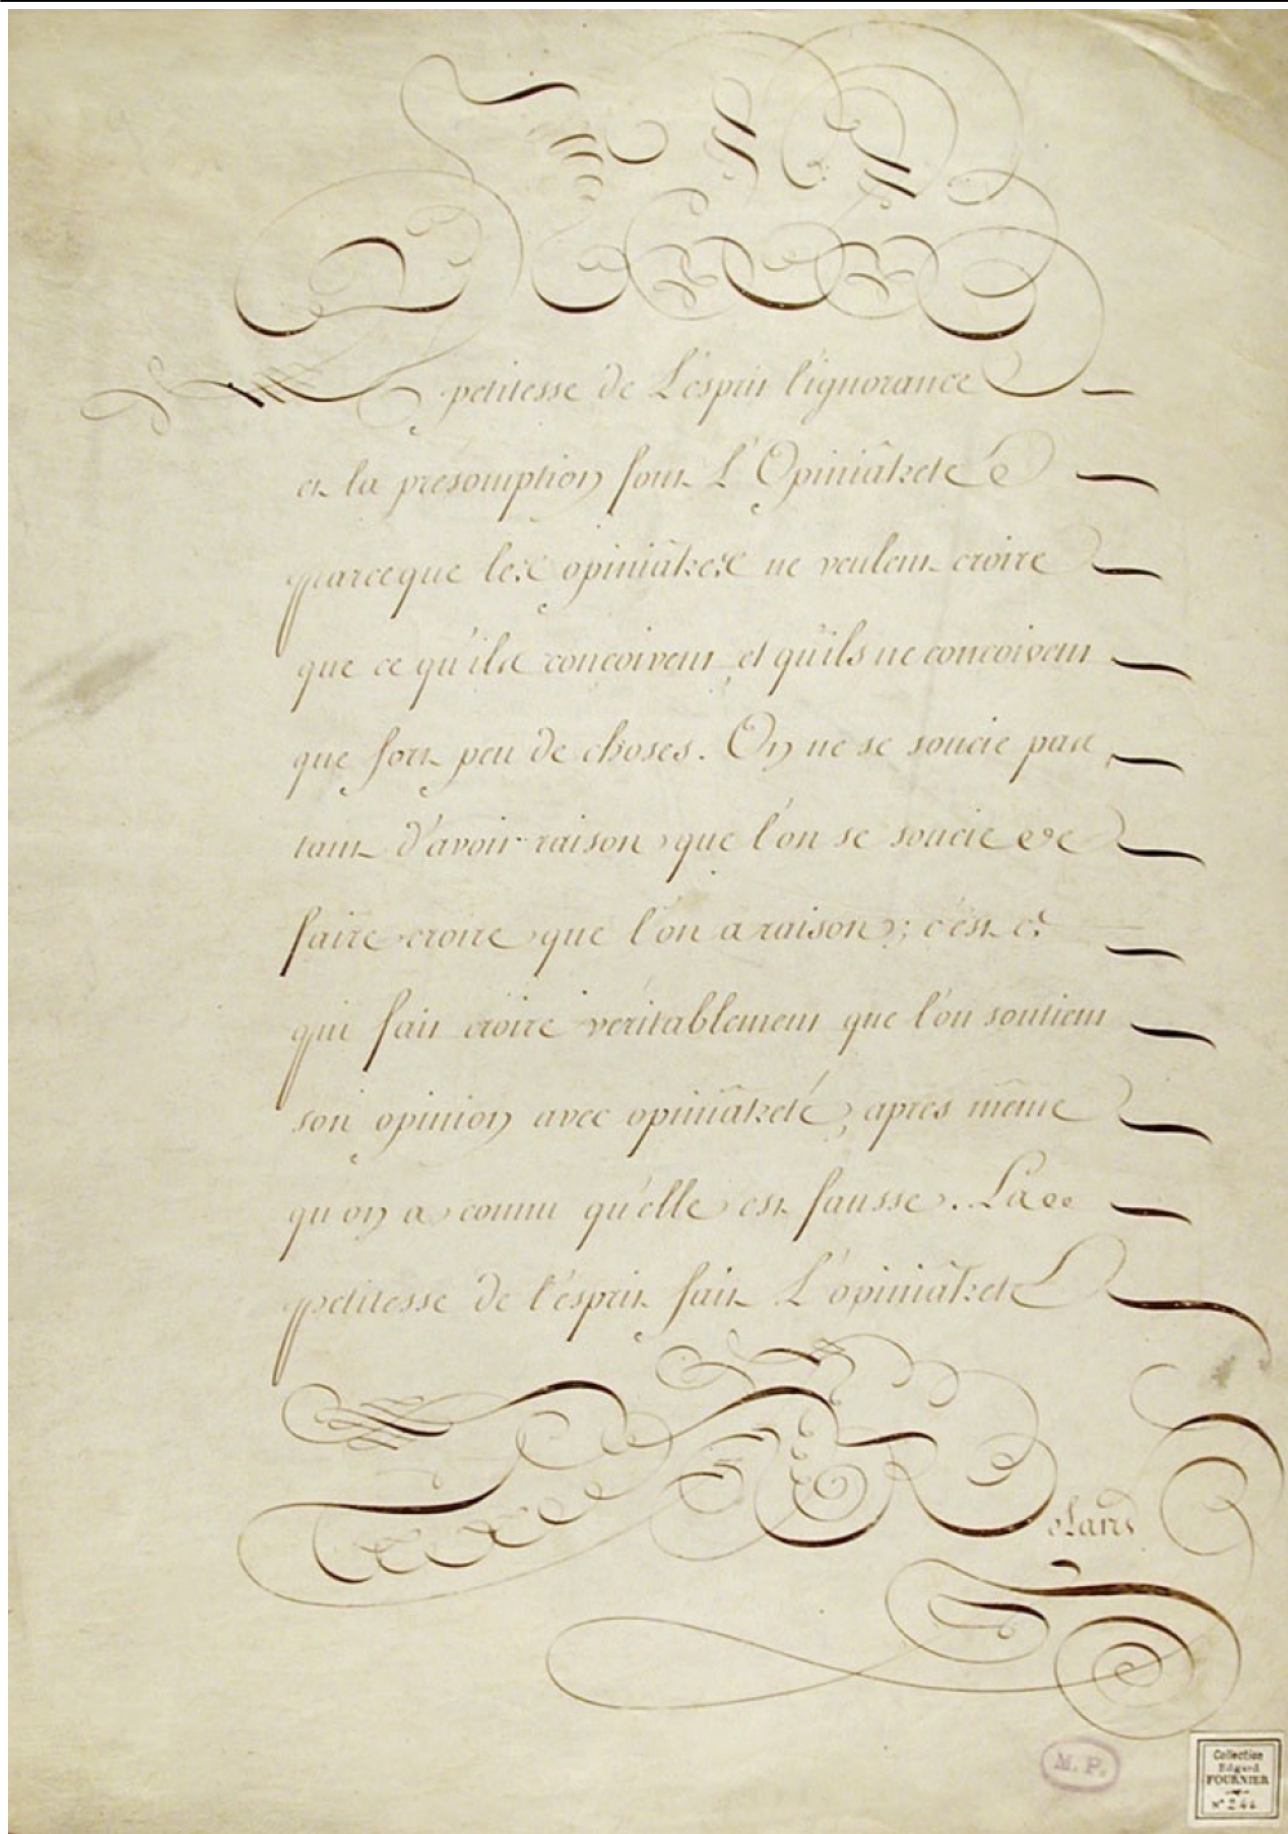 petitesse de L'esprit l'ignorance
et la présomption font L'Opiniâtreté
parceque les opiniâtres ne veulent croire
que ce qu'ils conçoivent, et qu'ils ne conçoivent
que fort peu de choses. On ne se soucie pas
tant d'avoir raison, que l'on se soucie de
faire croire que l'on a raison; c'est ce
qui fait croire véritablement que l'on soutient
son opinion avec opiniâtreté, après même
qu'on a connu qu'elle est fausse. La
petitesse de l'esprit fait L'opiniâtreté
M. P.
Collection
Edgard
FOURNIER